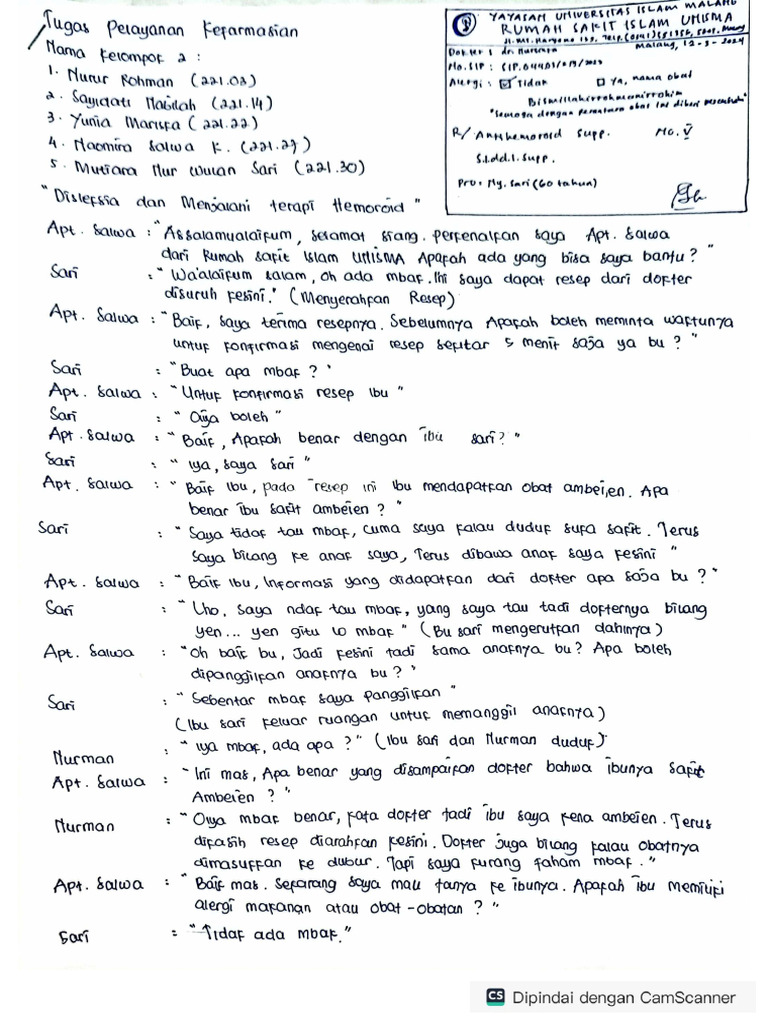 Tugas Pelayanan Kefarmasian
Nama Kelompok 2 :
1. Nurur Rohman (221.02)
2. Sayidati Nabilah (221.14)
3. Yunia Marufa (221.22)
4. Naomira Salwa K. (221.27)
5. Mutiara Nur Wulan Sari (221.30)
YAYASAN UNIVERSITAS ISLAM MALANG
RUMAH SAKIT ISLAM UNISMA
Malang, 12-3-2024
Dokter : dr. Nursara
No. SIP :
Alergi : ☑ Tidak ☐ Ya, nama obat
Bismillahirrohmanirrohim
"Semoga dengan perantara obat ini diberi kesembuhan"
R/ Antihemoroid Supp. No. V
S.1.dd.1. Supp.
Pro : Ny. Sari (60 tahun)
"Disleksia dan Menjalani terapi Hemoroid"
Apt. Salwa : "Assalamualaikum, selamat siang. Perkenalkan saya Apt. Salwa
dari Rumah Sakit Islam UNISMA Apakah ada yang bisa saya bantu ? "
Sari : "Wa'alaikum salam, oh ada mbak. Ini saya dapat resep dari dokter
disuruh kesini." (Menyerahkan Resep)
Apt. Salwa : "Baik, saya terima resepnya. Sebelumnya Apakah boleh meminta waktunya
untuk konfirmasi mengenai resep sekitar 5 menit saja ya bu ? "
Sari : "Buat apa mbak ? "
Apt. Salwa : "Untuk konfirmasi resep Ibu "
Sari : " Oiya boleh "
Apt. Salwa : "Baik, Apakah benar dengan ibu sari ? "
Sari : " Iya, saya Sari "
Apt. Salwa : " Baik Ibu, pada resep ini Ibu mendapatkan obat ambeien. Apa
benar ibu sakit ambeien ? "
Sari : "Saya tidak tau mbak, cuma saya kalau duduk suka sakit. Terus
saya bilang ke anak saya, Terus dibawa anak saya kesini "
Apt. Salwa : "Baik Ibu, Informasi yang didapatkan dari dokter apa saja bu ? "
Sari : " Lho, saya ndak tau mbak, yang saya tau tadi dokternya bilang
yen... yen gitu lo mbak " (Bu sari mengerutkan dahinya)
Apt. Salwa : "Oh baik bu, Jadi kesini tadi sama anaknya bu? Apa boleh
dipanggilkan anaknya bu ? "
Sari : " Sebentar mbak saya panggilkan "
(Ibu sari keluar ruangan untuk memanggil anaknya)
Nurman : " Iya mbak, ada apa ? " (Ibu sari dan Nurman duduk)
Apt. Salwa : "Ini mas, Apa benar yang disampaikan dokter bahwa ibunya Sakit
Ambeien ? "
Nurman : " Oiya mbak benar, kata dokter tadi ibu saya kena ambeien. Terus
dikasih resep diarahkan kesini. Dokter juga bilang kalau obatnya
dimasukkan ke dubur. Tapi saya kurang faham mbak . "
Apt. Salwa : " Baik mas. Sekarang saya mau tanya ke ibunya. Apakah ibu memiliki
alergi makanan atau obat-obatan ? "
Sari : "Tidak ada mbak."
CS Dipindai dengan CamScanner